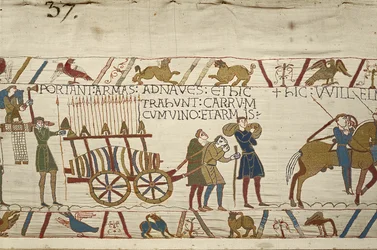 37.
PORTANT: ARMAS: ADNAVES: ET hIC
TRAhUNT: CARRUM
CUM VINO: ET ARMIS:
+ hIC: VVILLEL